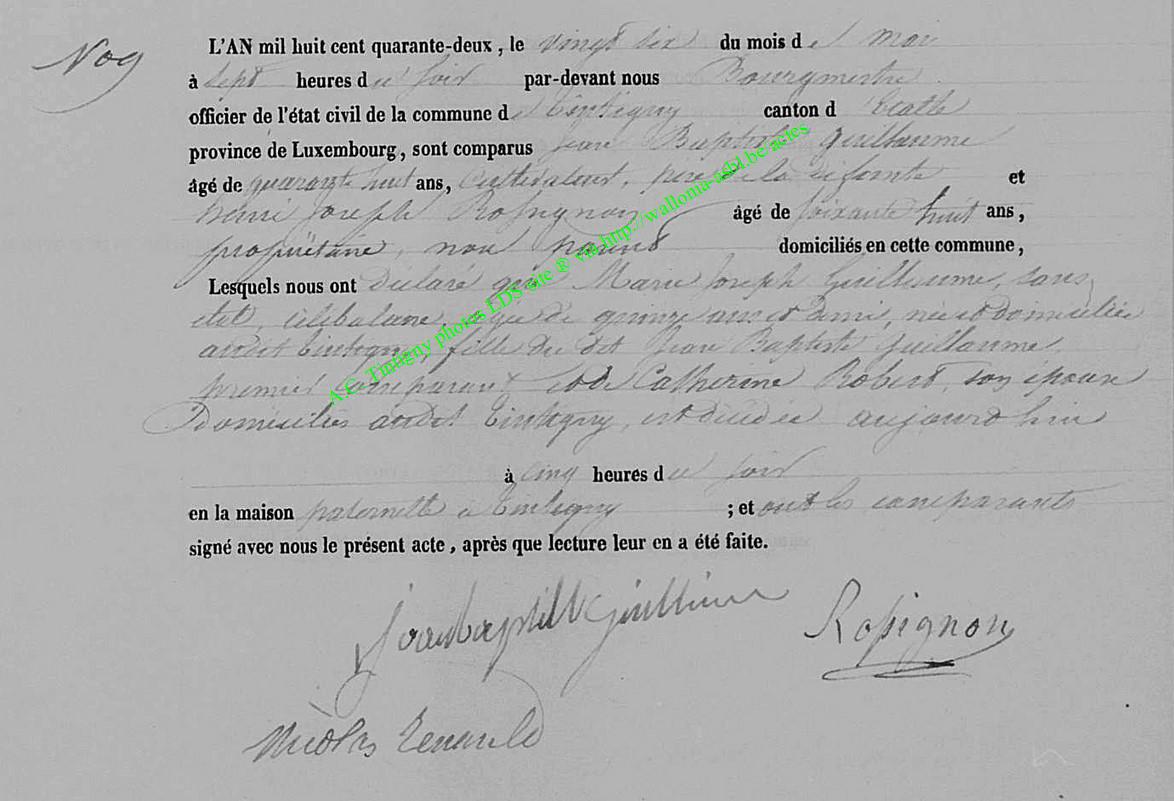 No 9
L'AN mil huit cent quarante-deux, le vingt six du mois de mai
à sept heures du soir par-devant nous Bourgmestre
officier de l'état civil de la commune de Tintigny canton d' Etalle
province de Luxembourg, sont comparus Jean Baptiste Guillaume
âgé de quarante huit ans, cultivateur, père de la défunte et
henri Joseph Rossignon âgé de soixante huit ans,
propriétaire, non parent domiciliés en cette commune,
Lesquels nous ont déclaré que Marie Joseph Guillaume, sans
état, célibataire, agée de quinze ans et demi, née et domiciliée
audit Tintigny, fille du dit Jean Baptiste Guillaume
premier comparant et de Catherine Robert, son épouse
Domiciliés audit Tintigny, est décédée aujourd'hui
à cinq heures du soir
en la maison paternelle à Tintigny ; et ont les comparants
signé avec nous le présent acte, après que lecture leur en a été faite.
Jean baptist Guillaume
Rossignon
Nicolas Renauld
A.E. Tintigny photos LDS site ® via http://wallonia-asbl.be/actes